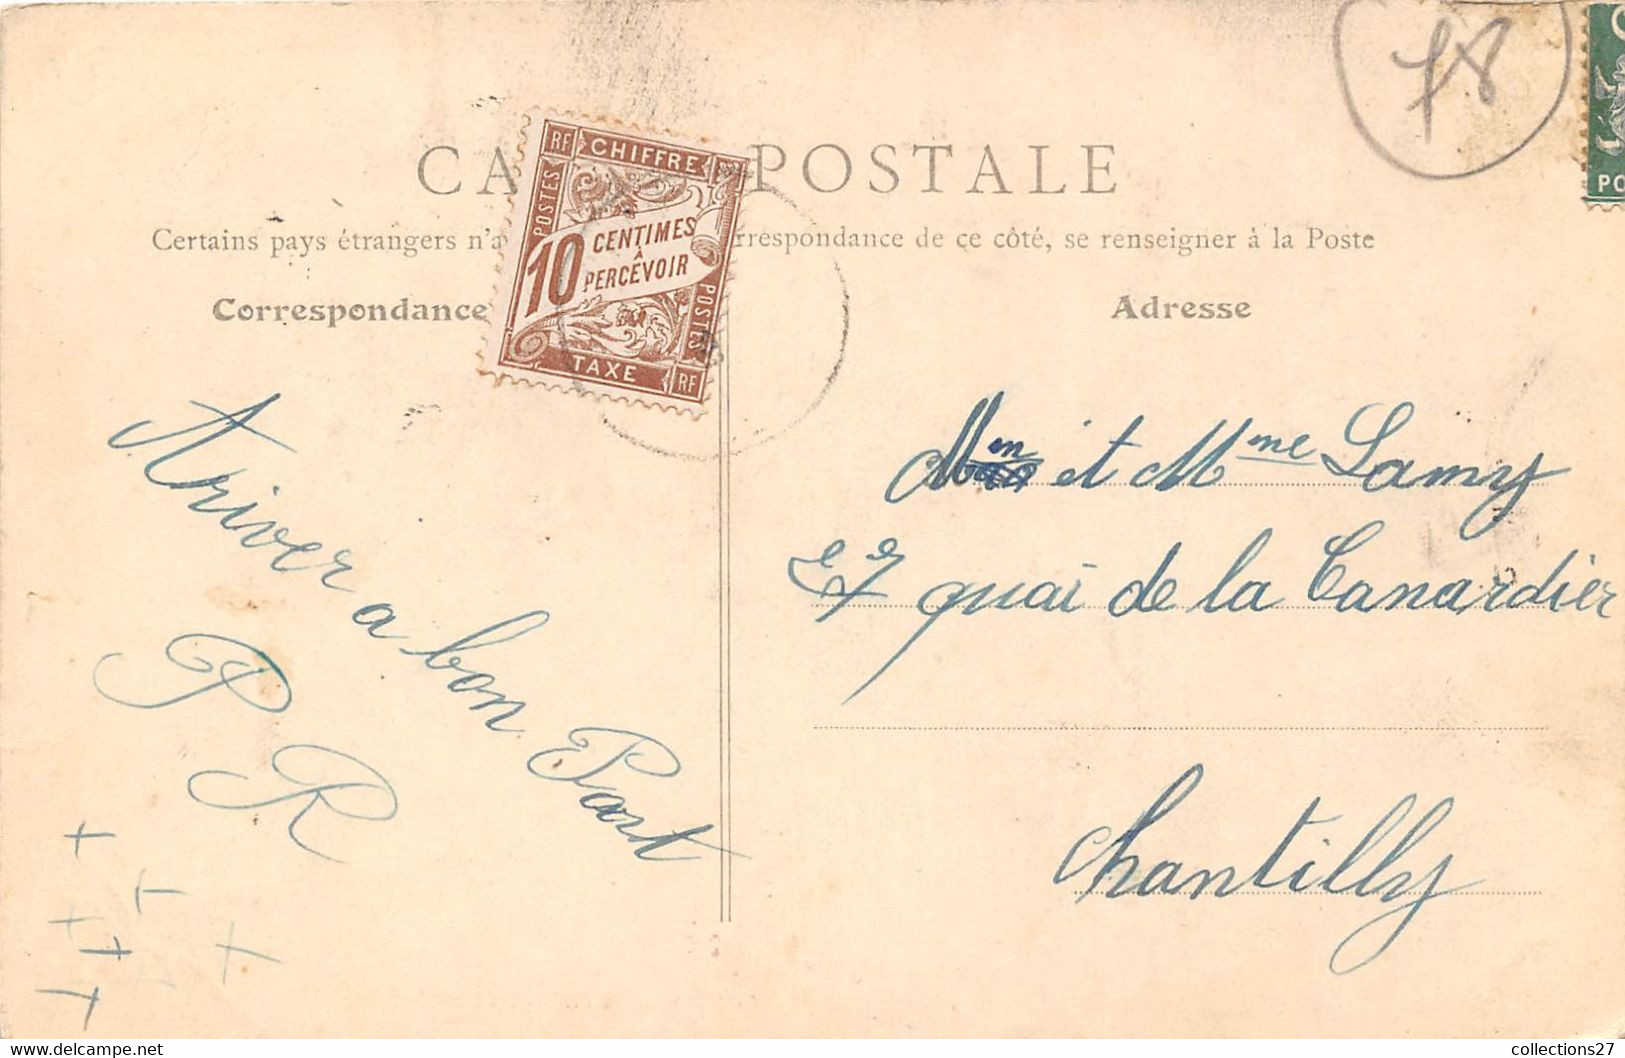 78
CA POSTALE
Certains pays étrangers n'a rrespondance de ce côté, se renseigner à la Poste
Correspondance
Adresse
RF CHIFFRE
POSTES
10 CENTIMES
A
PERCEVOIR
POSTES
TAXE RF
PO
Ariver a bon Port
P R
et Mme Lamy
27 quai de la Canardier
Chantilly
collections27